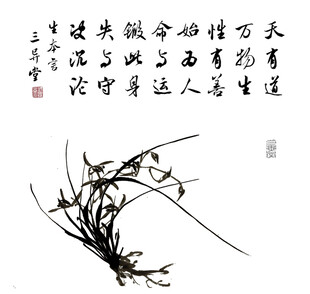 天有道
万物生
性有善
始为人
命与运
锻此身
失与守
沉沦
生本
三异堂